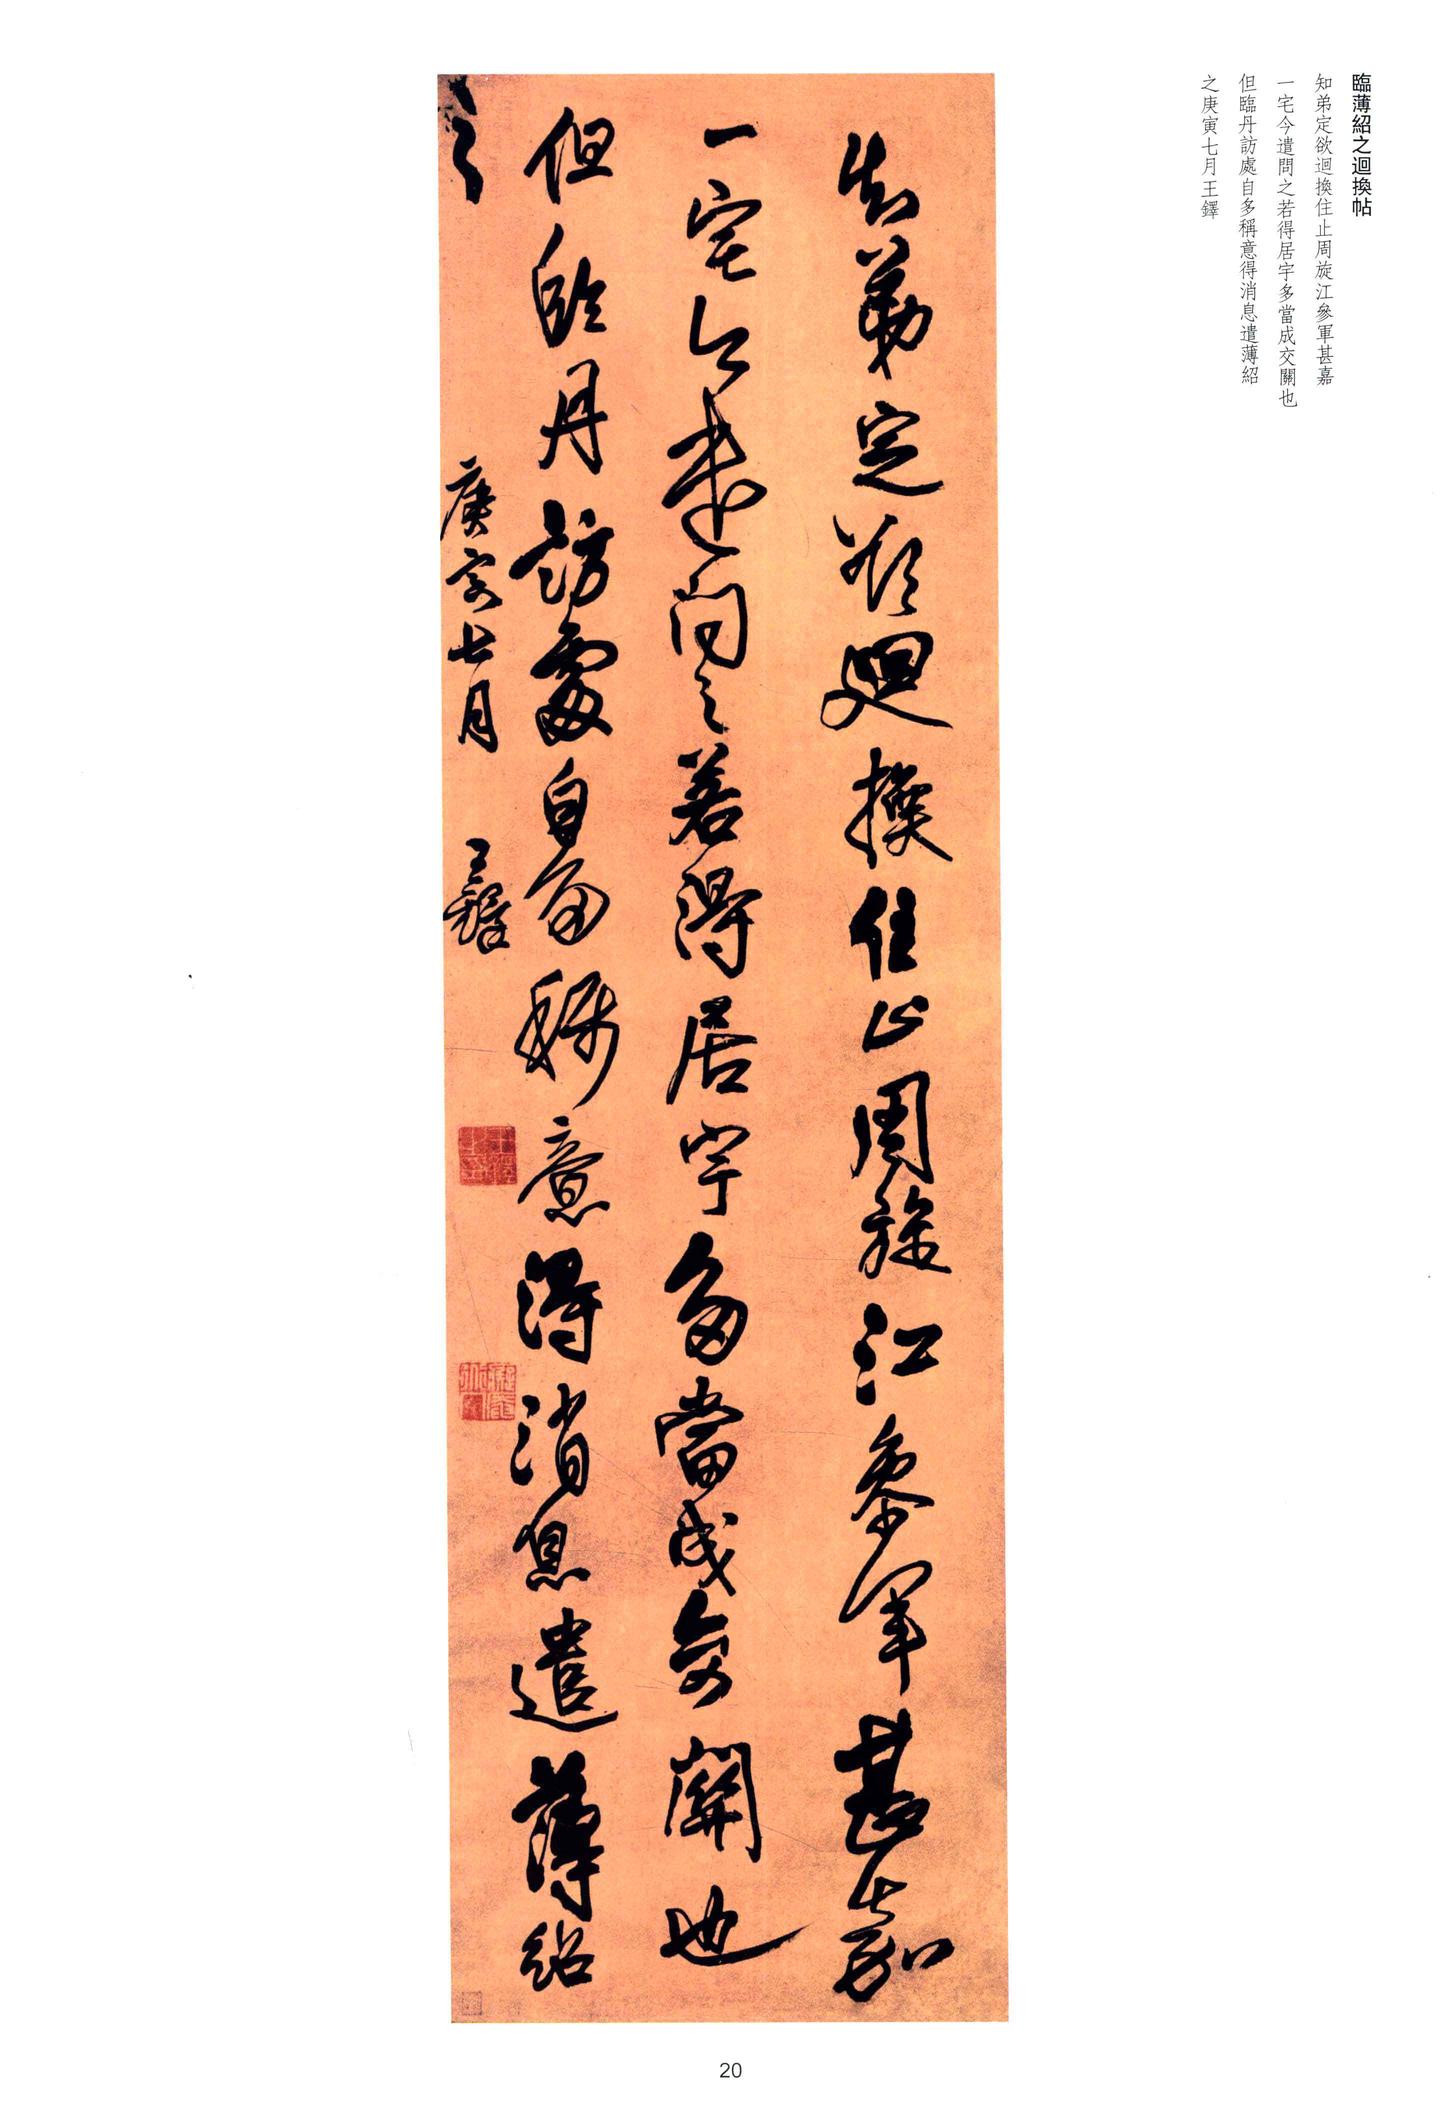 臨薄紹之迴換帖
知弟定欲迴換住止周旋江參軍甚嘉
一宅今遣問之若得居宇多當成交關也
但臨丹訪處自多稱意得消息遣薄紹
之庚寅七月王鐸
知弟定欲迴換住止周旋江參軍甚嘉
一宅今遣問之若得居宇多當成交關也
但臨丹訪處自多稱意得消息遣薄紹
之
庚寅七月 王鐸
20